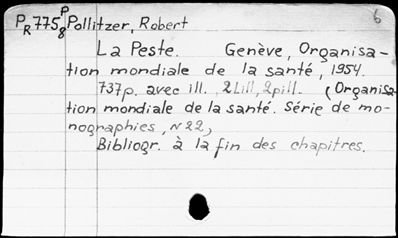 PR775P8 Pollitzer, Robert 6
La Peste. Genève, Organisa-
tion mondiale de la santé, 1954.
737p. avec ill. (Organisa-
tion mondiale de la santé. Série de mo-
nographies, N 22)
Bibliogr. à la fin des chapitres.